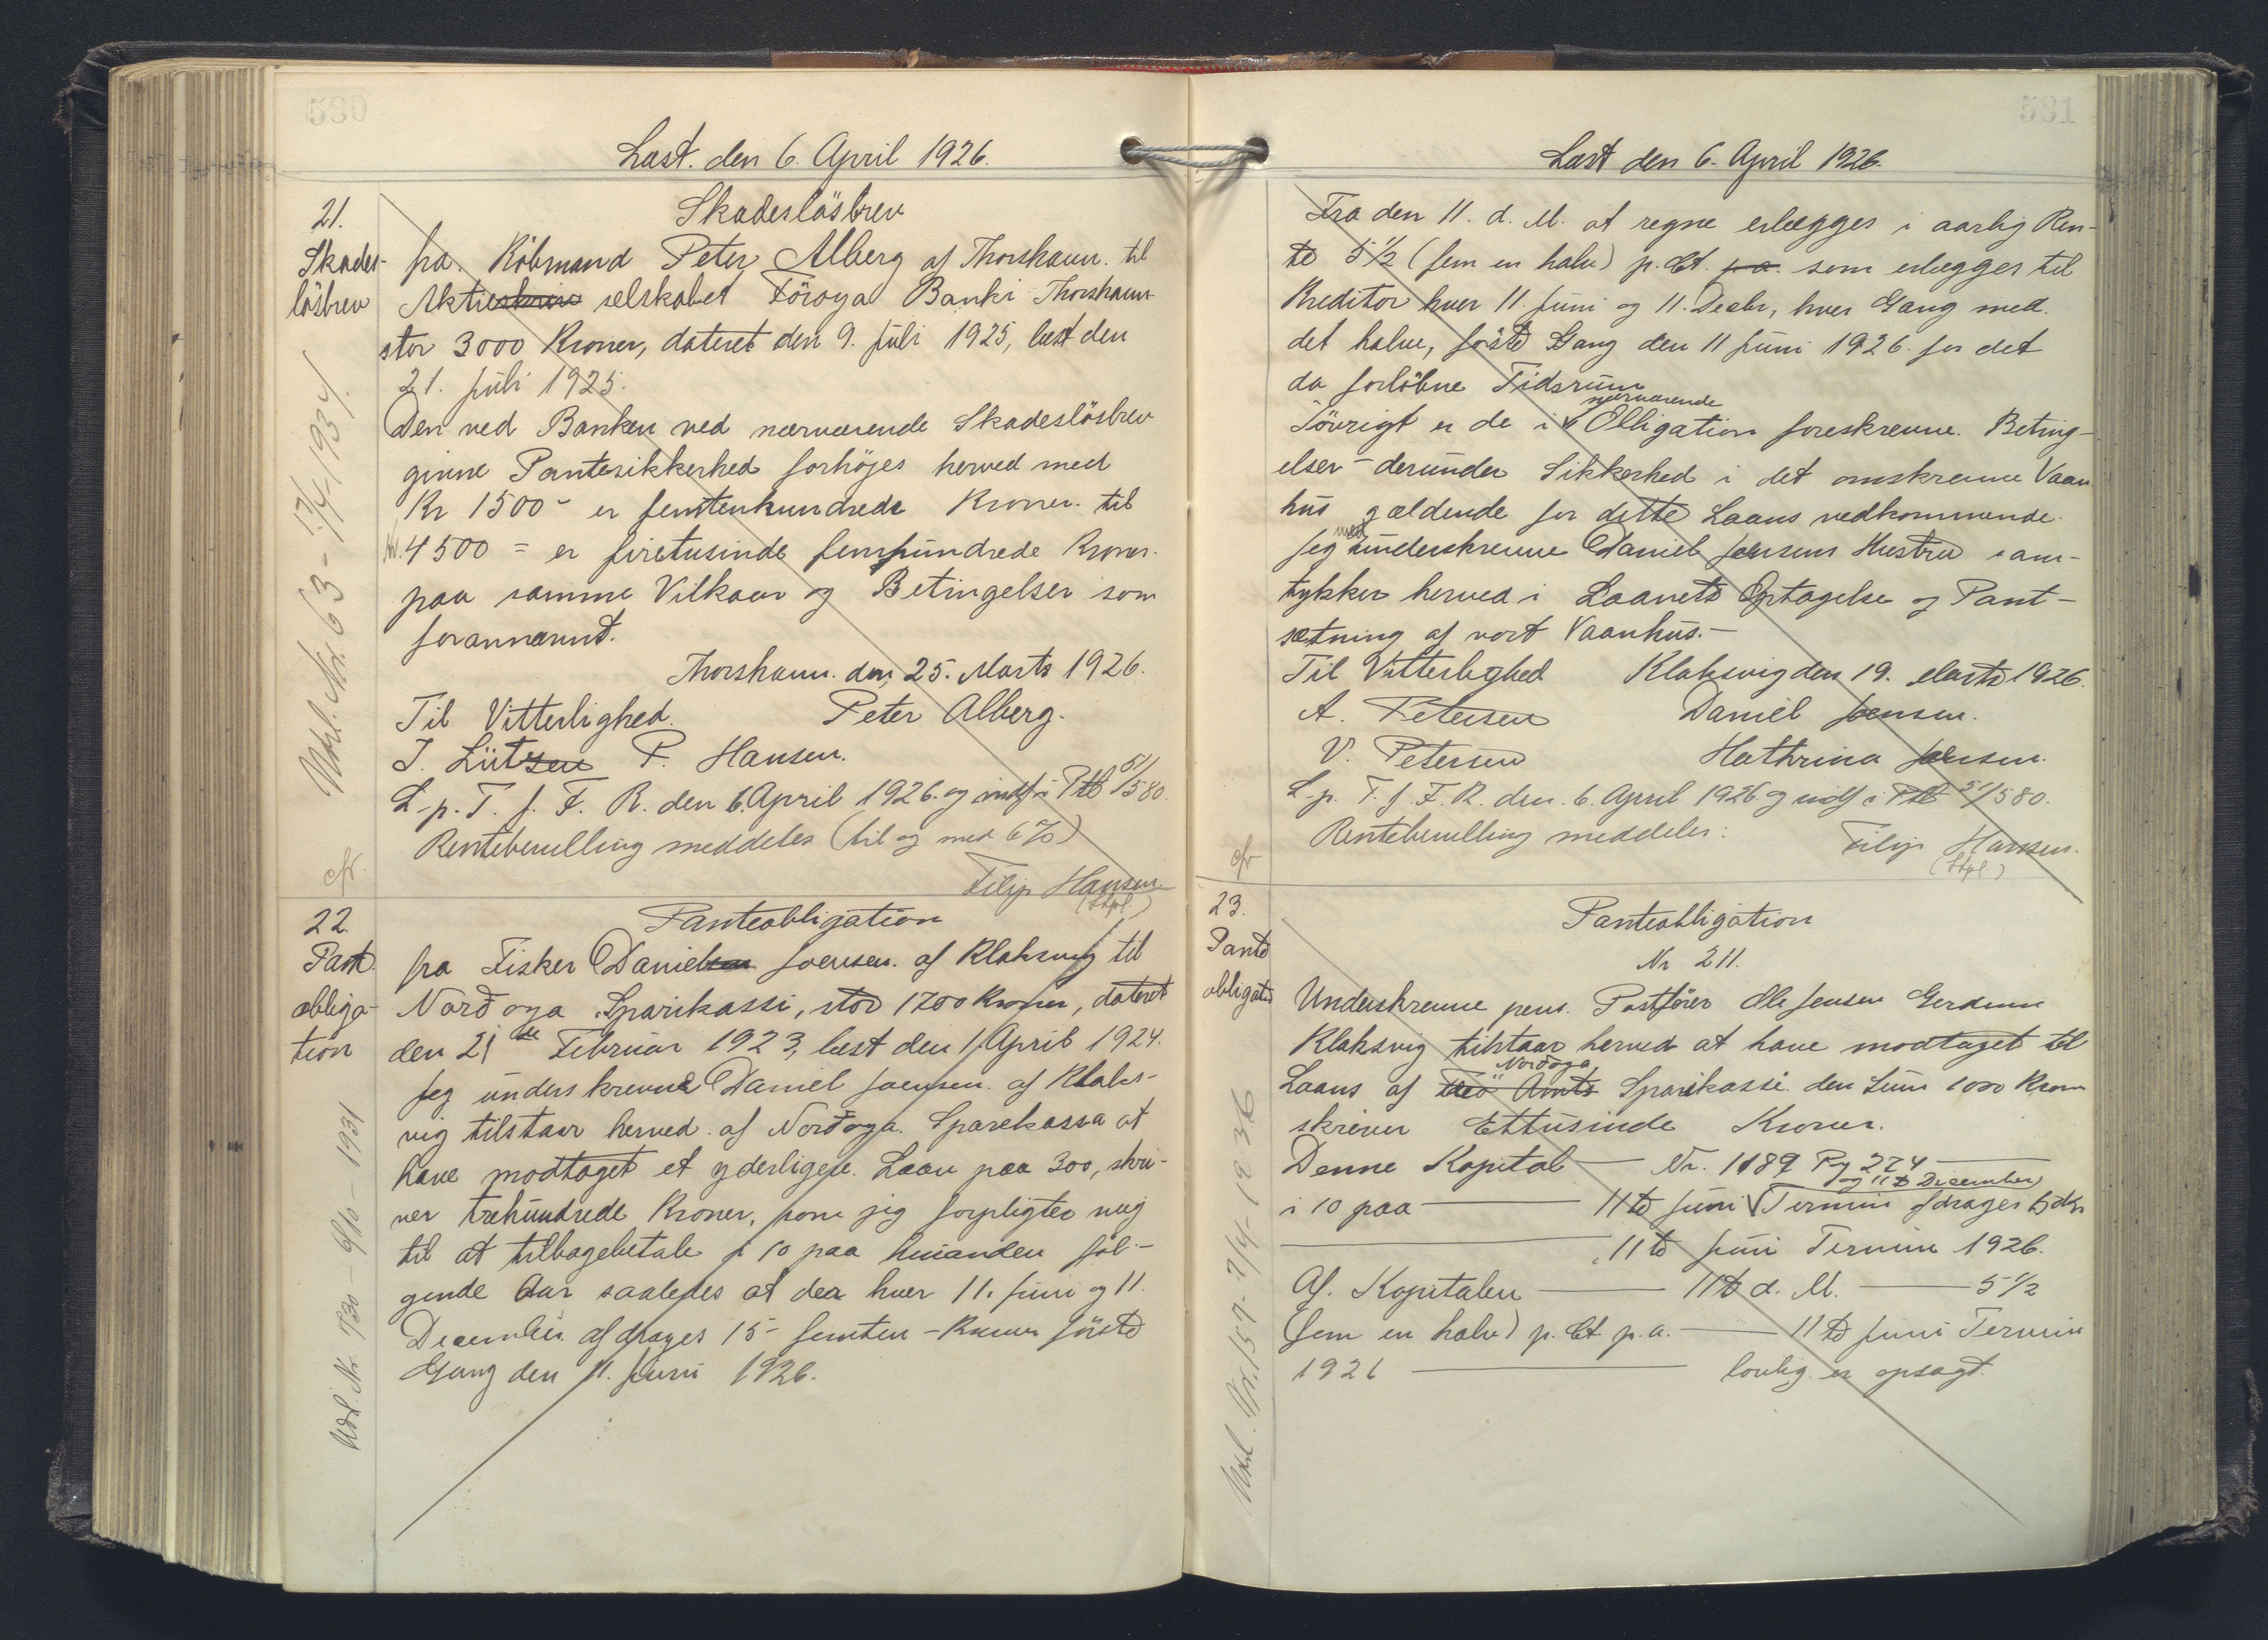 580
Læst. den 6. April 1926.
21.
Skades-
lösbrev
Skadeslösbrev
fra. Köbmand Peter Alberg af Thorshavn. til
Aktie selskabet Föroya Banki Thorshavn
stor 3000 Kroner, dateret den 9. Juli 1925, læst den
21. Juli 1925.
Den ved Banken ved nærværende Skadeslösbrev
givne Pantesikkerhed forhöjes herved med
Kr 1500 - er femtenhundrede Kroner. til
Kr. 4500 = er firetusinde femhundrede Kroner.
paa samme Vilkaar og Betingelser som
forannævnt.
Thorshavn. den 25. Marts 1926.
Til Vitterlighed. Peter Alberg.
J. Lützen P. Hansen.
L. p. T. f. F. R. den 6. April 1926. og indf i Ptb 51/580.
Rentebevilling meddeles (til og med 6%)
Filip Hansen.
(Stpl.)
Udsl. Nr. 63 - 17/4-1934.
cfr.
22.
Pant
obliga-
tion
Panteobligation
fra Fisker Daniel Joensen. af Klaksvig til
Norðoya Sparikassi, stor 1700 Kroner, dateret
den 21de Februar 1923, læst den 1 April 1924.
Jeg underskrevne Daniel Joensen. af Klaks-
vig tilstaar herved. af Norðoya. Sparekassa at
have modtaget et yderligere. Laan paa 300, skri-
ver trehundrede Kroner, som jeg forpligter mig
til at tilbagebetale i 10 paa hinanden föl-
gende Aar saaledes at der hver 11. Juni og 11.
December afdrages 15 - femten - Kroner förste
Gang den 11. Juni 1926.
Udsl Nr 730 - 6/10 - 1931
581
Læst den 6. April 1926.
Fra den 11. d. M. at regne erlægges i aarlig Ren-
te 5 1/2 (fem en halv) p. Ct. p.a. som erlægges til
Kreditor hver 11. Juni og 11. Decbr, hver Gang med.
det halve, förste Gang den 11 Juni 1926. for det
da forlöbne Tidsrum
nærværende
Iövrigt er de i Obligation foreskrevne. Beting-
elser - derunder Sikkerhed i det omskrevne Vaan
hus gældende for dette Laans vedkommende.
Jeg medunderskrevne Daniel Joensens Hustru sam-
tykker herved i Laanets Optagelse og Pant-
sætning af vort Vaanhus.-
Til Vitterlighed Klaksvig den 19. Marts 1926.
A. Petersen Daniel Joensen.
V. Petersen Hathrina Joensen.
L. p. T. f. F. R. den. 6. April 1926 og indf i Ptb 51/580.
Rentebevilling meddeles:
Filip Hansen.
(Stpl.)
cfr
23.
Pante
obligation
Panteobligation
Nr 211.
Underskrevne pens. Postförer Ole Jensen Gerdum
Klaksvig tilstaar herved at have modtaget til
Norðoya
Laans af Amts Sparikassi den Sum 1000 Kroner
skriver Ettusinde Kroner.
Denne Kapital — Nr. 1189 Pg 274 —
og 11te December
i 10 paa — 11te Juni Termin afdrages 50 Kr
— 11te Juni Termin 1926.
Af. Kapitalen — 11te d. M. — 5 1/2
(fem en halv) p. Ct p.a. — 11te Juni Termin
1926 — lovlig er opsagt.
Udsl. Nr. 157 - 7/4-1936